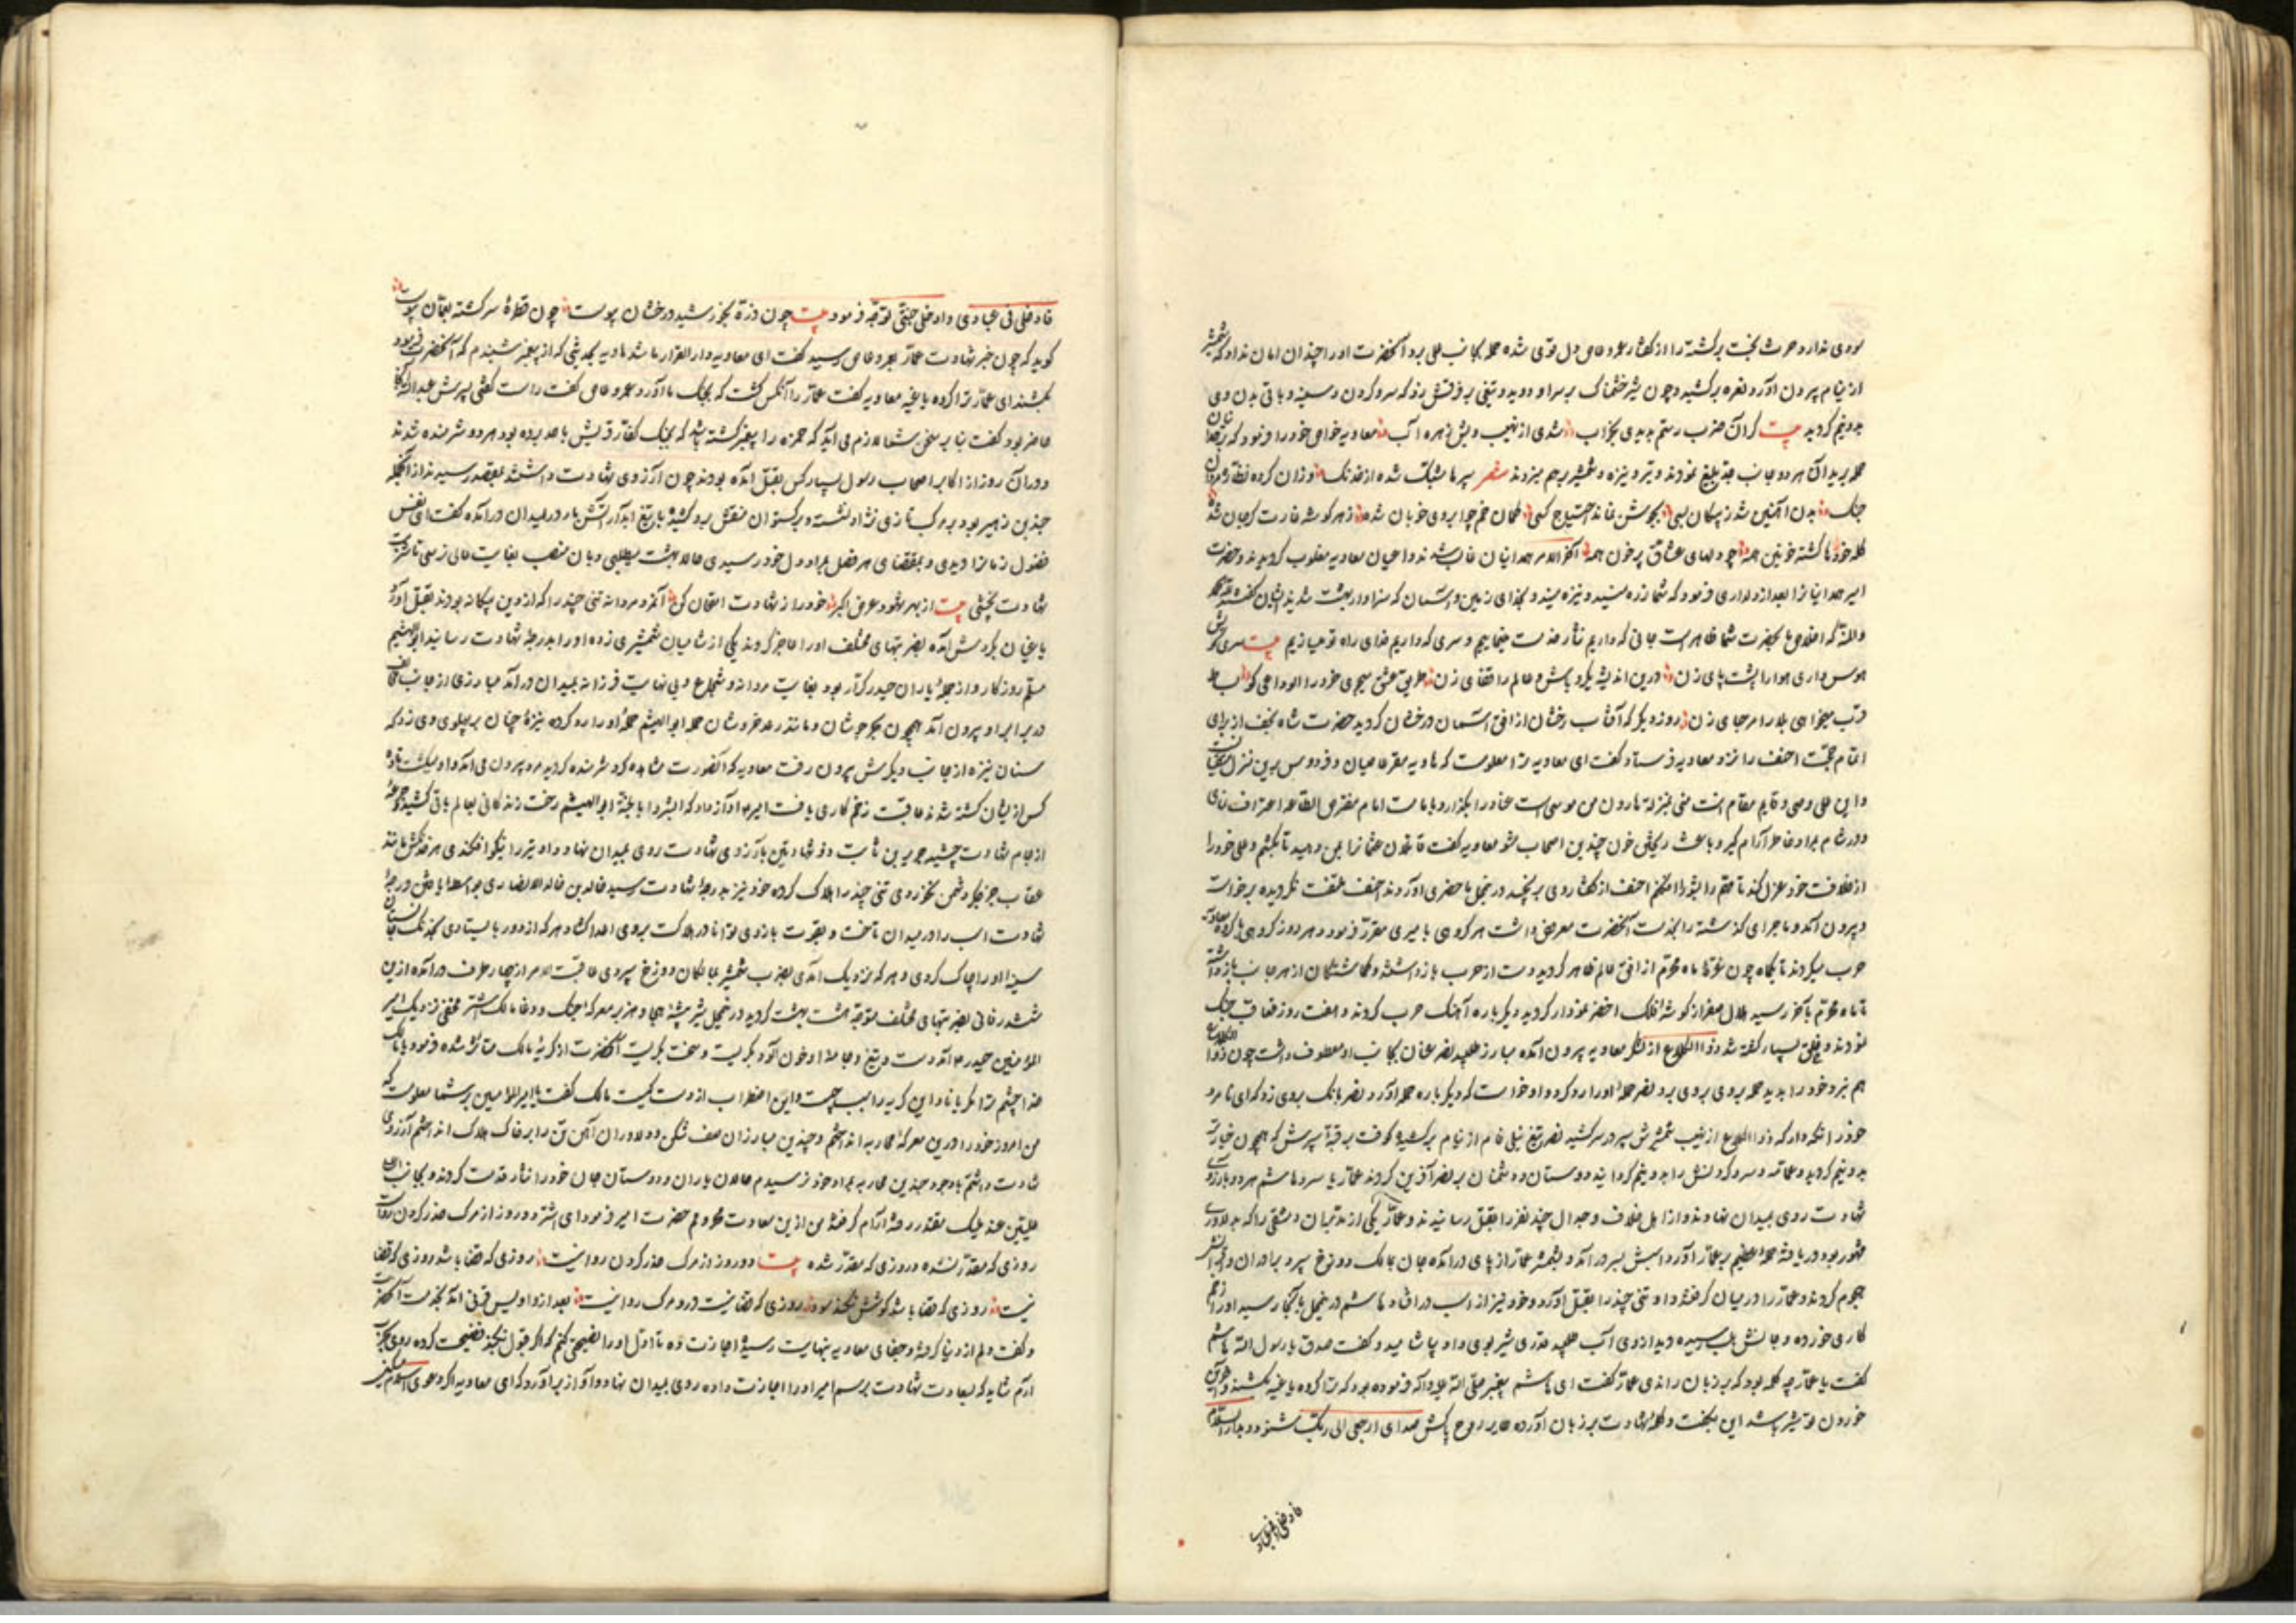 سودی ندارد حرث بخت برگشته را از گفتار عمرو عاص دل قوی شده حمله بجانب علی برد آنحضرت او را چندان امان نداد که شمشیر
از نیام بیرون آورد نعره برکشید و چون شیر خشمناک بر سر او دوید و تیغی بر فرقش زد که سر و گردن و سینه و باقی بدن وی
بدونیم گردید بیت گر آن ضرب رستم بدیدی بخواب شدی از نهیب دلش زهره آب معاویه خواص خود را فرمود که
حمله بریدان هر دو جانب جد بلیغ نمودند و تیر و نیزه و شمشیر بر هم میزدند شعر سپرها مشبک شده از خدنگ وزان کرده نظاره مردان
جنگ بدن آهنین شد ز پیکان بسی بجوشش نماند احتیاج کسی کمان خم چو ابروی خوبان شده ز هر گوشه غارت گر جان شده
کله خودها گشته خونین همه چو دلهای عشاق پر خون همه آخر الامر همدانیان غالب شدند و اعیان معاویه مغلوب گردیدند و حضرت
امیر همدانیانرا بعد از دلداری فرمود که شما زره منید و نیزه منید و بخدای زمین و آسمان که سزاوار بهشت شدید ایشان گفتند
والمنه که اخلاص ما بحضرت شما ظاهر است جانی که داریم نثار خدمت مینماییم و سری که داریم فدای راه تو میسازیم بیت سری
هوس داری هوا را پشت پای زن درین اندیشه یکرو باش و عالم را قفای زن طریق عشق میجوی خرد را الوداعی گو بساط
قرب میخواهی بلا را مرحبای زن روز دیگر که آفتاب رخشان از افق آسمان درخشان گردید حضرت شاه نجف از برای
اتمام حجت احنف را نزد معاویه فرستاد گفت ای معاویه ترا معلومست که هاویه مقر عاصیان و فردوس برین منزل
و این علی وصی و قایم مقام انت منی بمنزلة هارون من موسی است عناد را بگذار و بامامت امام مفترض الطاعه اعتراف نمای
و در شام بمراد خاطر آرام گیر و باعث ریختن خون چندین اصحاب مشو معاویه گفت قاتلان عثمانرا بمن دهید تا بکشم و علی خود را
از خلافت خود عزل کند تا مقرر بشورا افکنم احنف از گفتار وی برنجید درینحال ما حضری آوردند احنف ملتفت نگردیده برخاست
و بیرون آمد و ماجرای گذشته را بخدمت آنحضرت معروض داشت هر گروهی با میری مقرر فرمود و هر روز گروهی با گروه معاویه
حرب میکردند تا یکماه چون غرهٔ ماه محرم از افق عالم ظاهر گردید دست از حرب بازداشتند و گماشتگان از هر جانب بازداشته
تا ماه محرم بآخر رسید هلال صفر از گوشهٔ فلک اخضر نمودار گردید دیگر باره آهنگ حرب کردند و هفت روز متعاقب جنگ
نمودند و خلق بسیار کشته شد ذوالکلاع از لشکر معاویه بیرون آمده مبارز طلبید نضر عنان بجانب او معطوف داشت چون ذوالکلاع
هم نبرد خود را بدید حمله بروی بروی برد نضر حملهٔ او را رد کرد و او خواست که دیگر باره حمله آورد نضر بانگ بروی زد که ای نامرد
خود را نگه دار که ذوالکلاع از نهیب شمشیرش سپر در سر کشید نضر تیغ نیلی فام از نیام برکشیده کوفت بر قبهٔ سپرش که همچون خیار تر
بدونیم گردید و عمامه و سر و گردنش را بدونیم گردانید دوستان و دشمنان بر نضر آفرین کردند عمار یاسر و هاشم هر دو بآرزوی
شهادت روی بمیدان نهادند و از اهل خلاف و جدال چند نفر را بقتل رسانیدند و عمار یکی از ندیمان دمشقی را که بدلاوری
مشهور بود دریافته حملهٔ عظیم بر عمار آورد اسبش بسر درآمد و بشمشیر عمار از پای درآمده جان بمالک دوزخ سپرد برادران و
هجوم کردند و عمار را در میان گرفته او تنی چند را بقتل آورد و خود نیز از اسب درافتاد هاشم درینحال بآنجا رسید او را زخم
کاری خورده و جانش بلب رسیده دید از وی آب طلبید قدری شیر بوی داد بیاشامید و گفت صدق یا رسول الله هاشم
گفت یا عمار چه کلمه بود که بر زبان راندی عمار گفت ای هاشم پیغمبر صلی الله علیه و آله فرموده بود که ترا گروه باغیه بکشند و آخرین
خوردن تو شیر باشد این بگفت و کلمهٔ شهادت بر زبان آورده طایر روح پاکش صدای ارجعی الی ربک شنود و دار السلام
فادخلی فی عبادی
فادخلی فی عبادی وادخلی جنتی توجه فرمود بیت چون ذره بخورشید درخشان پیوست چون قطرهٔ سرگشته بعمان پیوست
گویند که چون خبر شهادت عمار بعمرو عاص رسید گفت ای معاویه دار القرار ما شد هاویه بحدیثی که از پیغمبر شنیدم که آنحضرت فرمود
بکشند ای عمار ترا گروه باغیه معاویه گفت عمار را آنکس کشت که بجنگ ما آورد عمرو عاص گفت راست گفتی پسرش عبدالله آنجا
حاضر بود گفت بنابر سخن شما لازم می آید که حمزه را پیغمبر کشته باشد که بجنگ کفار قریش با خود برده بود هر دو شرمنده شدند
و در آن روز از اکابر اصحاب رسول بسیار کس بقتل آمده بودند چون آرزوی شهادت داشتند بمقصد رسیدند از آنجمله
جندب بن زهیر بود بر مرکب تازی نژاد نشسته و برگستوان منقش برو کشیده با تیغ آبدار آتش بار در میدان درآمده گفت ای نفس
فضول زمانرا دیدی و بمقتضای هر فصل بمراد دل خود رسیدی حالا بهشت میطلبی و بآن منصب بغایت عالی نرسی تا شربت
شهادت نچشی بیت از بهر شهود عرض اکبر خود را ز شهادت امتحان کن آخر مردانه تنی چند را که از دین بیگانه بودند بقتل آورد
یاغیان بگردش آمده بضربتهای مختلف او را عاجز کردند یکی از شامیان شمشیری زده او را بدرجهٔ شهادت رسانید ابوالهیثم
مسلم روزگار و از جملهٔ یاران حیدر کرار بود بغایت مردانه و شجاع و بی نهایت فرزانه بمیدان درآمد مبارزی از جانب
در برابر او بیرون آمد همچون بحر جوشان و مانند رعد خروشان حمله ابوالهیثم حملهٔ او را رد کرده نیزهٔ چنان بر پهلوی وی زد که
سنان نیزه از جانب دیگرش بیرون رفت معاویه که آنصورت مشاهده کرد شرمنده گردید مرد بیرون می آمد و او میکشت تا نه
کس از ایشان کشته شدند عاقبت زخم کاری یافت امیر آواز داد که ابشروا بالجنة ابوالهیثم رخت زندگانی بعالم باقی کشید و جرعهٔ
از جام شهادت چشید جریر بن ثابت ذو شهادتین بآرزوی شهادت روی بمیدان نهاد و او تیر را نیکو افکندی هر خدنگش مانند
عقاب جز جگر دشمن نخوردی تنی چند را هلاک کرده خود نیز بدرجهٔ شهادت رسید خالد بن خالد الانصاری بواسطهٔ یافتن درجهٔ
شهادت اسب را در میدان تاخت و بقوت بازوی توانا در هلاکت بروی اعدا گشاد هر که از دور بایستادی بخدنگ جانستان
سینهٔ او را چاک کردی و هر که نزدیک آمدی بضرب شمشیر بمالکان دوزخ سپردی عاقبت الامر از چهار طرف درآمده ازین
ششدر فانی بضربتهای مختلف متوجه هشت بهشت گردید درینحال شیر بیشهٔ هیجا و هزبر معرکهٔ جنگ و وغا مالک اشتر نخعی نزدیک امیر
المؤمنین حیدر آمد دست و تیغ و جامهٔ او خون آلود بگریست و سخت بگریست آنحضرت از گریهٔ مالک متأثر شده فرمود یا مالک
خدا چشم ترا مگریاناد این گریه را سبب چیست و این اضطراب از دست کیست مالک گفت یا امیرالمؤمنین بر شما معلومست که
من امروز خود را درین معرکهٔ محاربه انداختم و چندین مبارزان صف شکن و دلاوران آهن تن را بر خاک هلاک انداختم آرزوی
شهادت داشتم با وجود چندین محاربه بمراد خود نرسیدم حالا یاران و دوستان جان خود را نثار قدمت کردند و بجانب اعلی
علیین عند ملیک مقتدر رفته آرام گرفتند من ازین سعادت محرومم حضرت امیر فرمود ای اشتر دو روز از مرگ حذر کردن روا نیست
روزی که مقدر نشده و روزی که مقدر شده بیت دو روز از مرگ حذر کردن روا نیست روزی که قضا باشد روزی که قضا
نیست روزی که قضا باشد کوشش نکند سود روزی که قضا نیست درو مرگ روا نیست بعد ازو اویس قرنی آمد بخدمت آنحضرت
و گفت دلم از دنیا گرفته و جفای معاویه بنهایت رسیده اجازت ده تا اول او را نصیحتی کنم که اگر قبول نکند فضیحت کرده روی بحرب
آرم شاید که بسعادت شهادت برسم امیر او را اجازت داده روی بمیدان نهاد و آواز برآورد که ای معاویه اگر دعوی اسلام